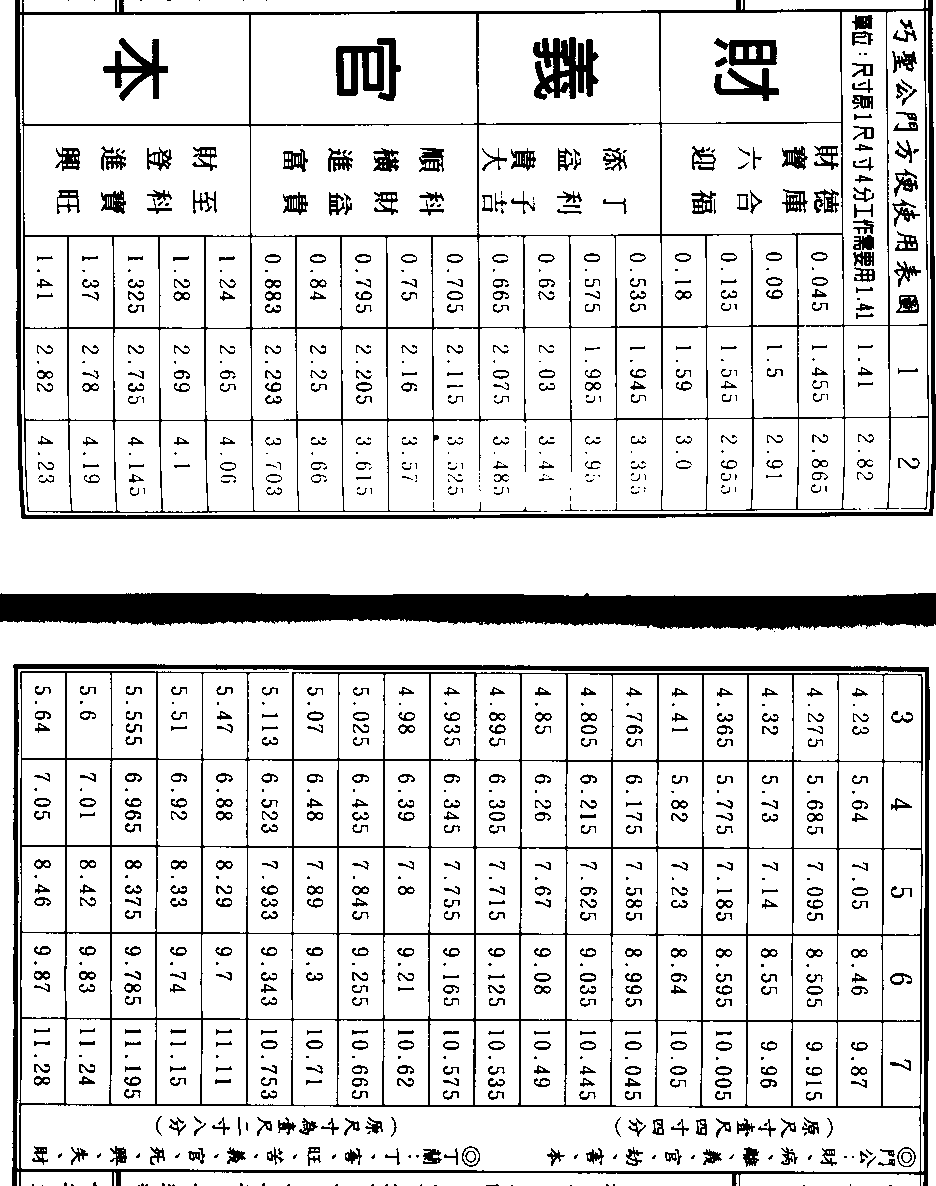 巧聖公門方便使用表圖 1 2 3 4 5 6 7
單位：尺寸原1尺4寸4分工作需要用1.41 1.41 2.82 4.23 5.64 7.05 8.46 9.87
財
財德 0.045 1.455 2.865 4.275 5.685 7.095 8.505 9.915
寶庫 0.09 1.5 2.91 4.32 5.73 7.14 8.55 9.96
六合 0.135 1.545 2.955 4.365 5.775 7.185 8.595 10.005
迎福 0.18 1.59 3.0 4.41 5.82 7.23 8.64 10.05
義
添丁 0.535 1.945 3.355 4.765 6.175 7.585 8.995 10.045
益利 0.575 1.985 4.805 6.215 7.625 9.035 10.445
貴子 0.62 2.03 3.44 4.85 6.26 7.67 9.08 10.49
大吉 0.665 2.075 3.485 4.895 6.305 7.715 9.125 10.535
官
順科 0.705 2.115 3.525 4.935 6.345 7.755 9.165 10.575
橫財 0.75 2.16 3.57 4.98 6.39 7.8 9.21 10.62
進益 0.795 2.205 3.615 5.025 6.435 7.845 9.255 10.665
富貴 0.84 2.25 3.66 5.07 6.48 7.89 9.3 10.71
0.883 2.293 3.703 5.113 6.523 7.933 9.343 10.753
本
財至 1.24 2.65 4.06 5.47 6.88 8.29 9.7 11.11
登科 1.28 2.69 4.1 5.51 6.92 8.33 9.74 11.15
進寶 1.325 2.735 4.145 5.555 6.965 8.375 9.785 11.195
興旺 1.37 2.78 4.19 5.6 7.01 8.42 9.83 11.24
1.41 2.82 4.23 5.64 7.05 8.46 9.87 11.28
◎門公：財、病、離、義、官、劫、害、本
（原尺寸壹尺四寸四分）
◎丁蘭：丁、害、旺、苦、義、官、死、興、失、財
（原尺寸為壹尺二寸八分）